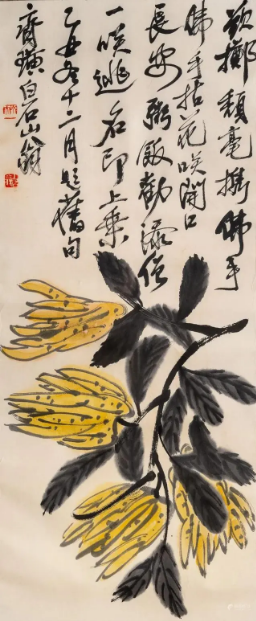 欲擲頹毫携佛手
佛手拈花咲開口
長安粥飯勸添僧
一咲逃名即上乘
乙丑冬十二月題舊句
齊璜白石山翁